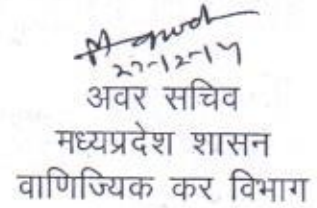 27-12-14
अवर सचिव
मध्यप्रदेश शासन
वाणिज्यिक कर विभाग